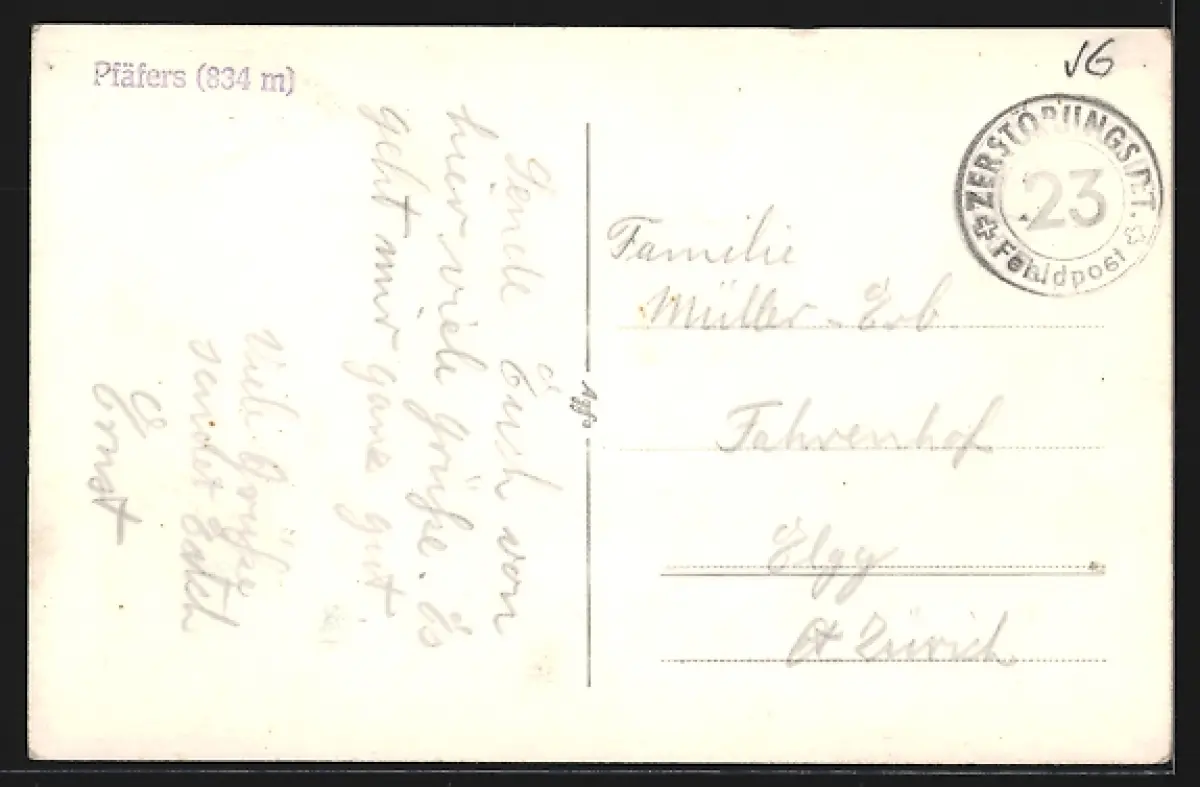 Pfäfers (834 m)
Sende Euch von
hier viele Grüsse. Es
geht mir ganz gut
Viele Grüsse
sendet Euch
Ernst
Agfa
VG
ZERSTÖRUNGSDET.
23
Fehldpost
Familie
Müller-Erb
Fahrenhof
Elgg
Kt Zürich